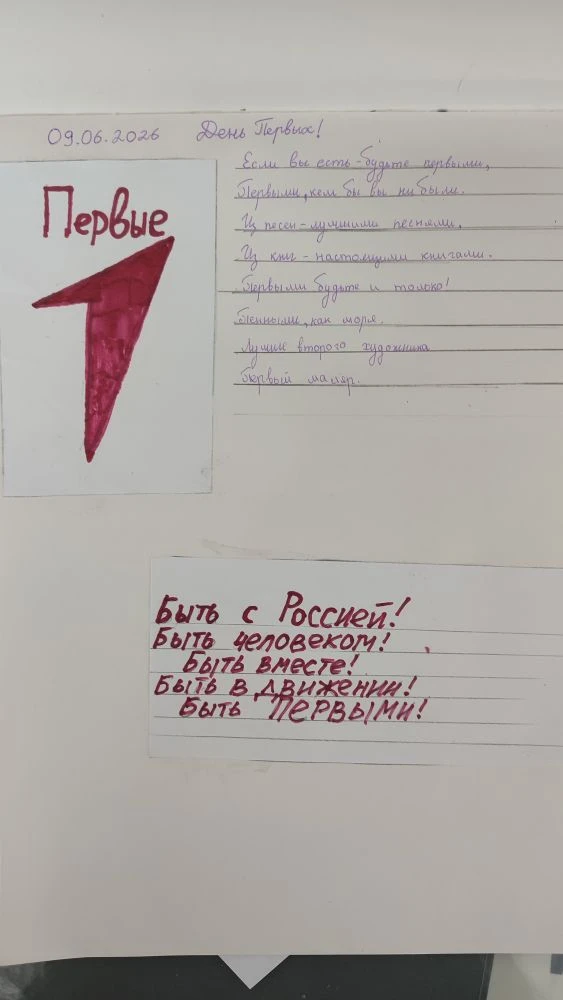 09.06.2026 День Первых!
Первые
Если вы есть - будьте первыми,
Первыми, кем бы вы ни были.
Из песен - лучшими песнями,
Из книг - настоящими книгами.
Первыми будьте и только!
Пенными, как моря.
Лучше второго художника
Первый маляр.
Быть с Россией!
Быть человеком!
Быть вместе!
Быть в движении!
Быть ПЕРВЫМИ!